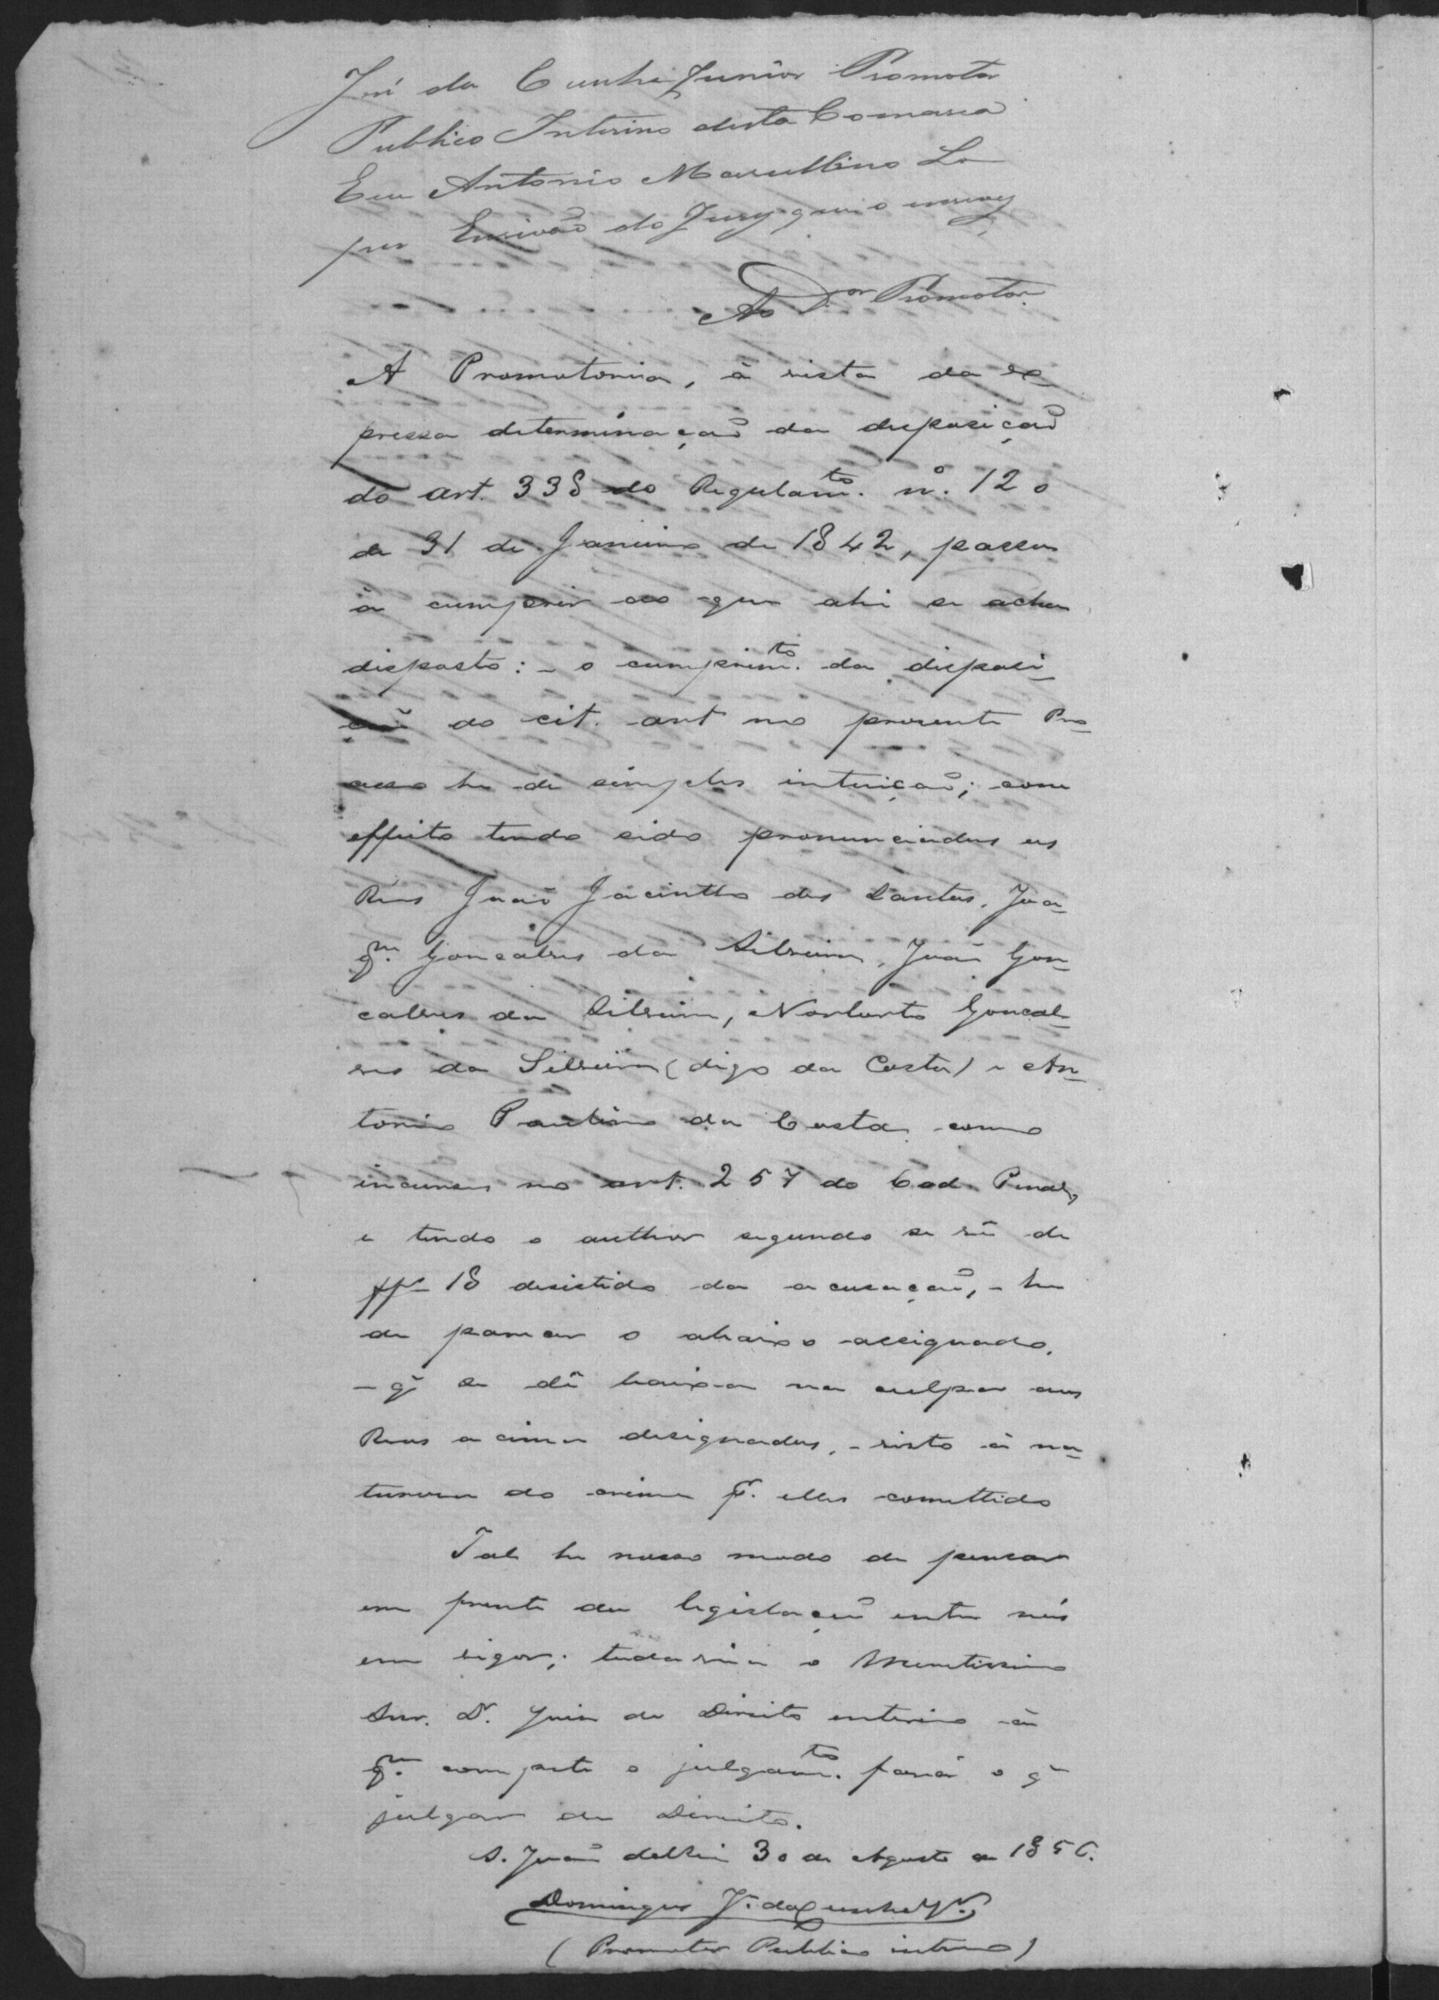 José da Cunha Junior Promotor
Publico Interino desta Comarca
Eu Antonio Marcellino Lo
pes Escrivão do Jury que o escrevy
Ao Dor. Promotor
A Promotoria, á vista da ex-
pressa determinação da disposição
do art. 338 do Regulamto. nº. 120
de 31 de Janeiro de 1842, passa
á cumprir ao que ahi se acha
disposto: - o cumprimto. da disposi-
ção do cit. art no presente Pro-
cesso he de simples intuição; com
effeito tendo sido pronunciados os
Reos João Jacintho dos Santos, Joa-
qm. Gonçalves da Silveira, João Gon-
calves da Silveira, Norberto Goncal-
ves da Silveira (digo da Costa) e An-
tonio Paulino da Costa como
incursos no art. 257 do Cod. Penal,
e tendo o author segundo se vê de
ff- 18 desistido da acusação, - he
de parecer o abaixo assignado,
- q' se dê baixa na culpa aos
Reos acima designados, - visto á na-
tureza do crime pr. elles comettido
Tal he nosso modo de pensar
em frente da legislação entre nós
em vigor; todavia o Meretissimo
Snr. Dr. Juiz de Direito interino á
qm. compete o julgamto. fará o q'
julgar de Direito.
S. João delRei 30 de Agosto de 1856.
Domingos J. da Cunha Jr.
(Promotor Publico interino)